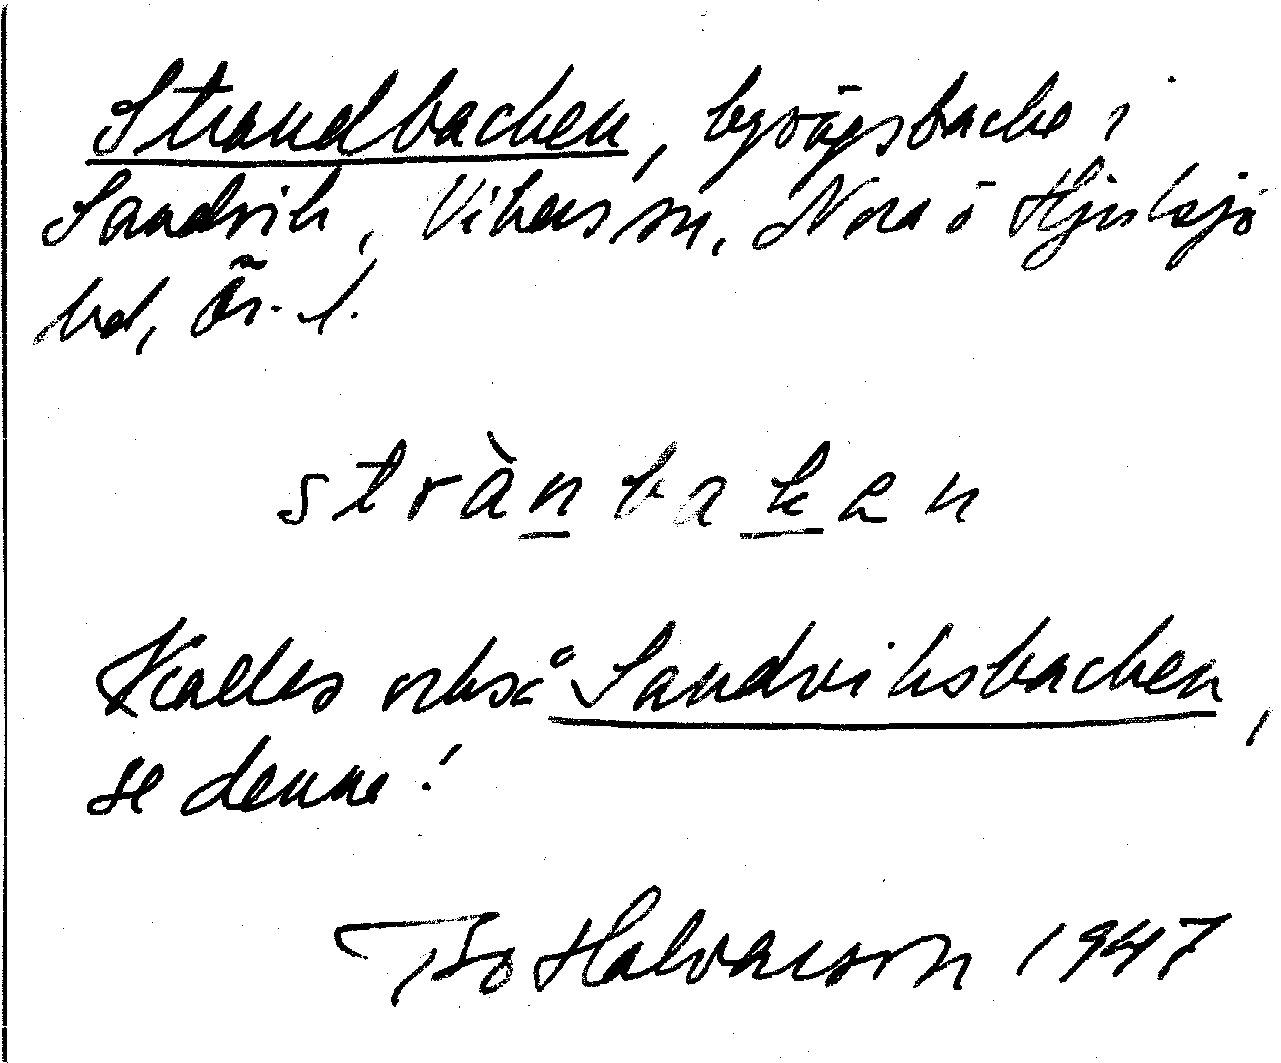 Strandbacken, byvägsbacke i
Sandvik, Vikersvn, Nora o Hjulsjö
bd, Ör. l.
strànbaken
Kallas också Sandviksbacken,
se denne!
Bo Halvarson 1947